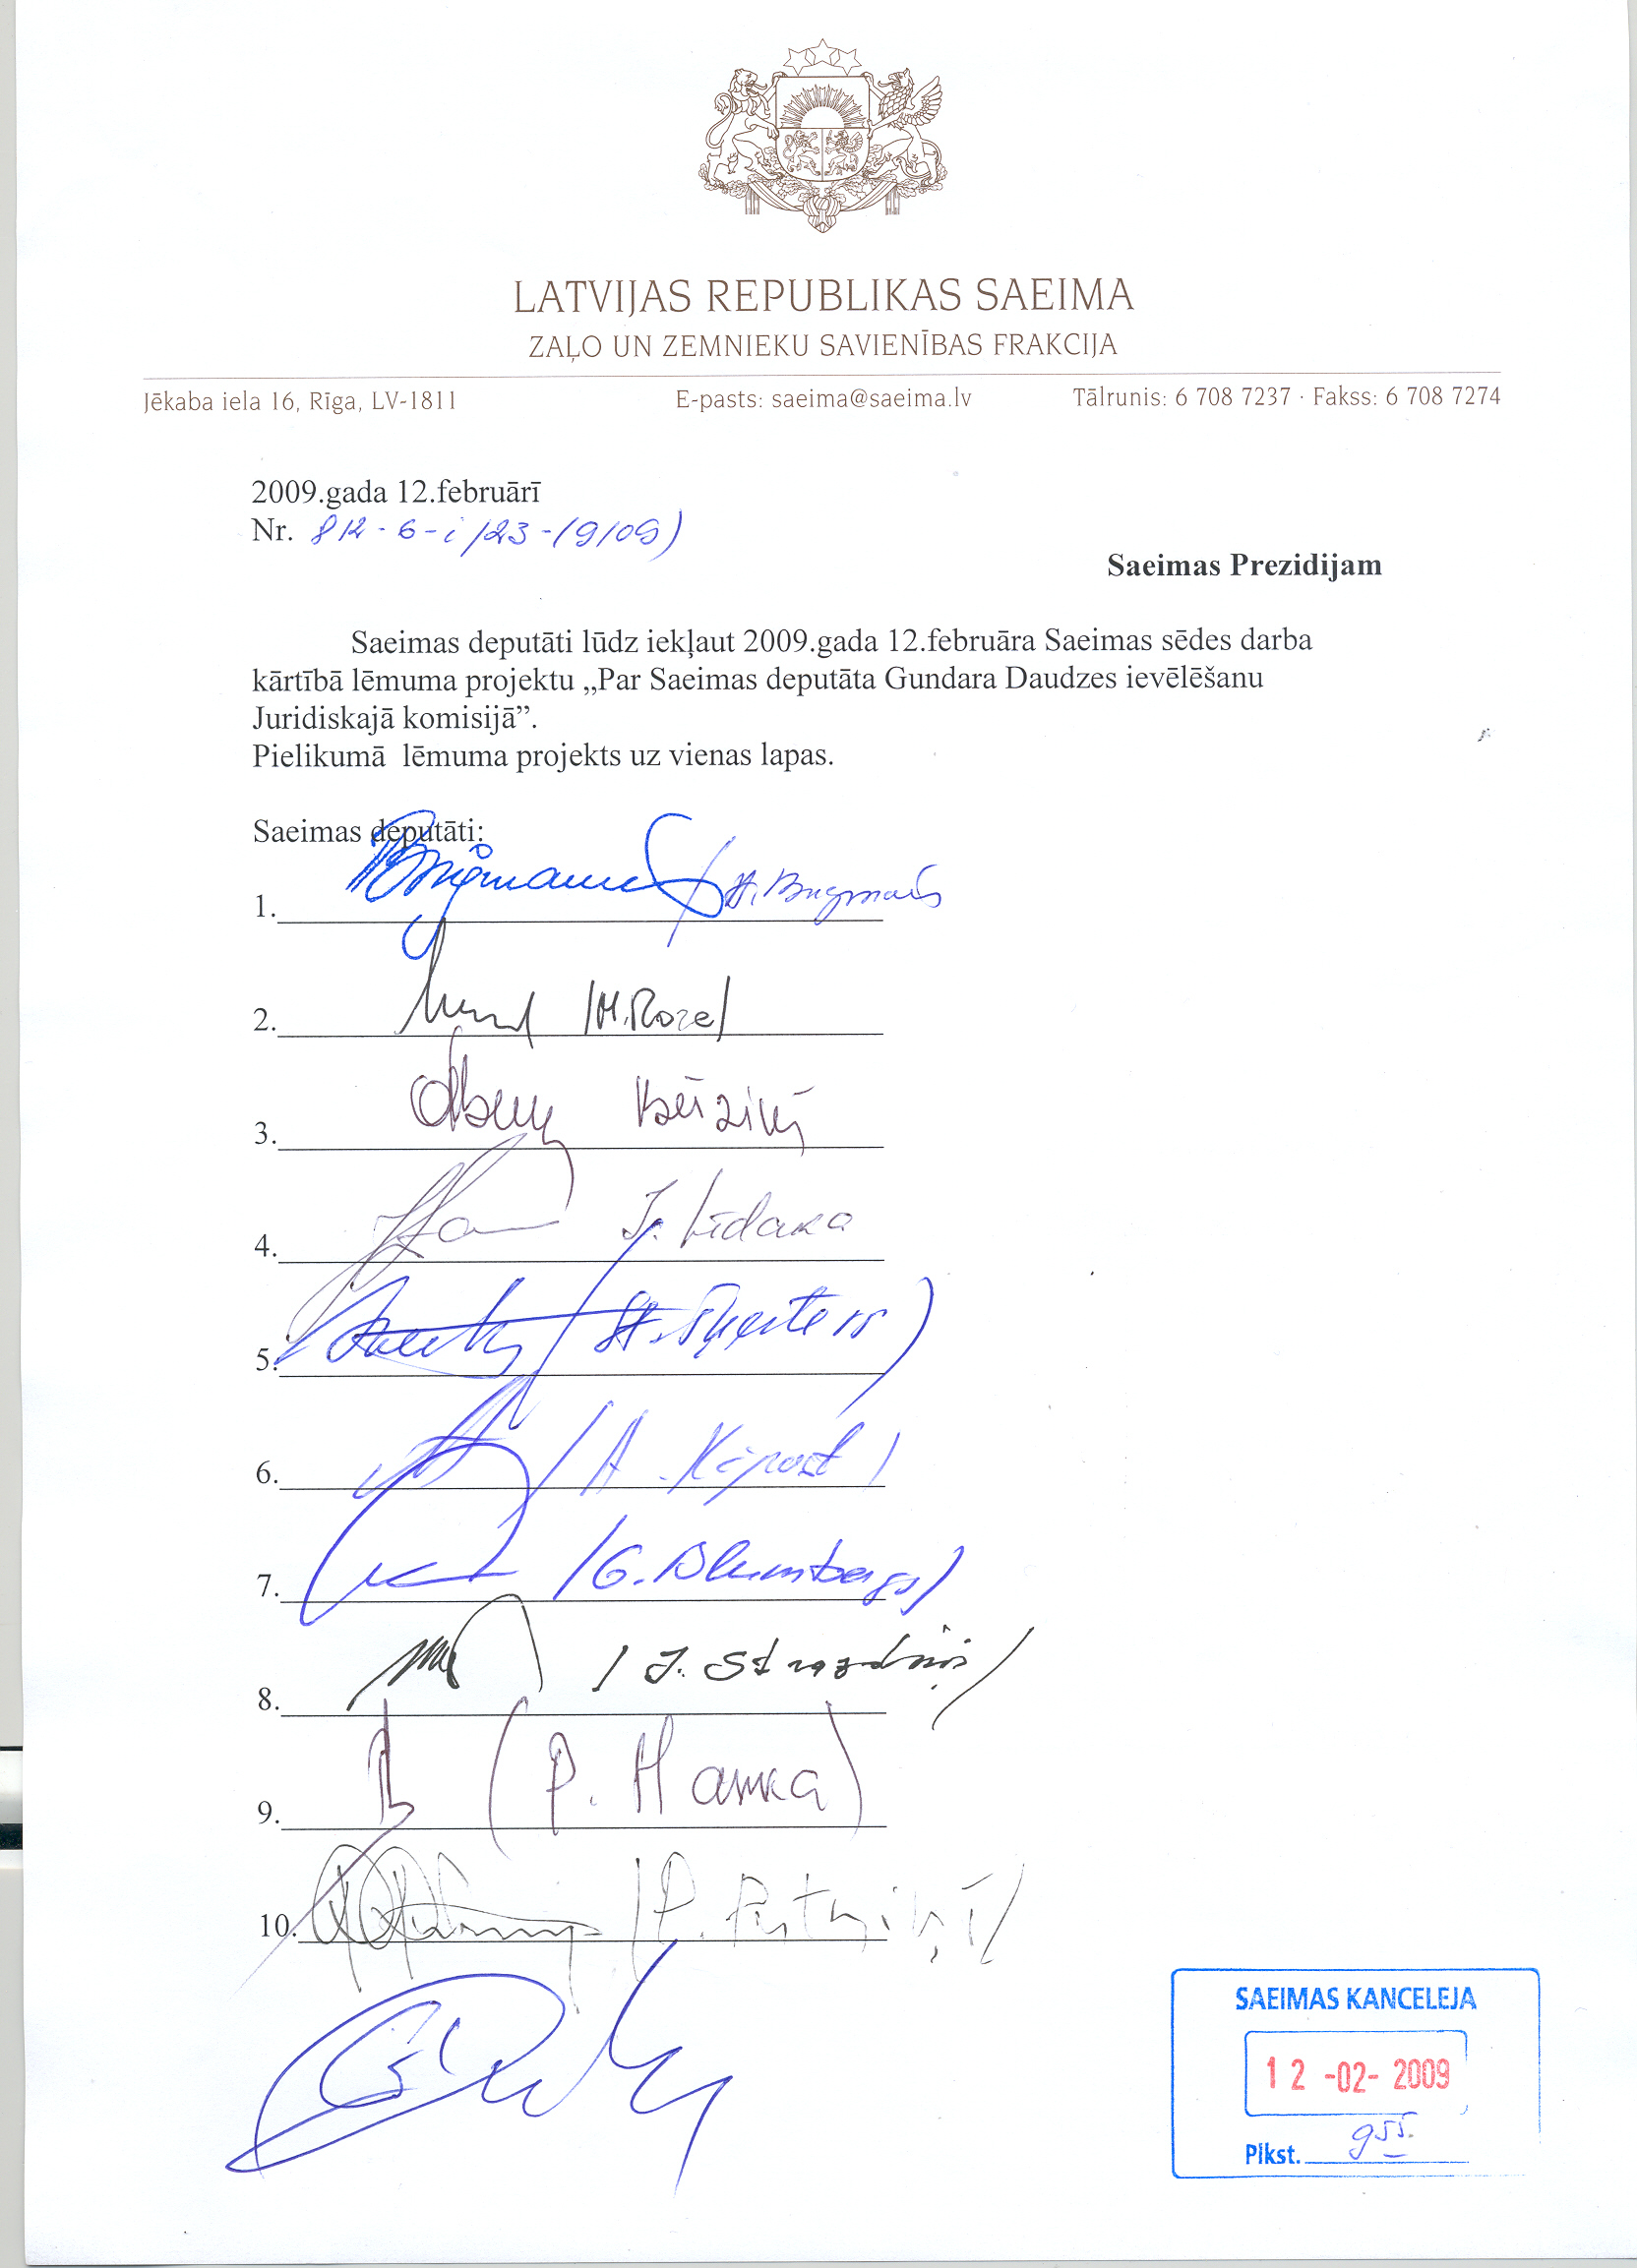 LATVIJAS REPUBLIKAS SAEIMA
ZAĻO UN ZEMNIEKU SAVIENĪBAS FRAKCIJA
Jēkaba iela 16, Rīga, LV-1811 E-pasts: saeima@saeima.lv Tālrunis: 6 708 7237 · Fakss: 6 708 7274
2009.gada 12.februārī
Nr. 812-6-i/23-(9/09)
Saeimas Prezidijam
Saeimas deputāti lūdz iekļaut 2009.gada 12.februāra Saeimas sēdes darba
kārtībā lēmuma projektu „Par Saeimas deputāta Gundara Daudzes ievēlēšanu
Juridiskajā komisijā”.
Pielikumā lēmuma projekts uz vienas lapas.
Saeimas deputāti:
1.
2. /M.Roze/
3. Bērziņš
4. J. Līdaka
5.
6. /A.
7. /G. Blumbergs/
8. / J. Strazdiņš /
9. (P. Hanka)
10. /P. Putniņš/
SAEIMAS KANCELEJA
12 -02- 2009
Plkst. 9 55.